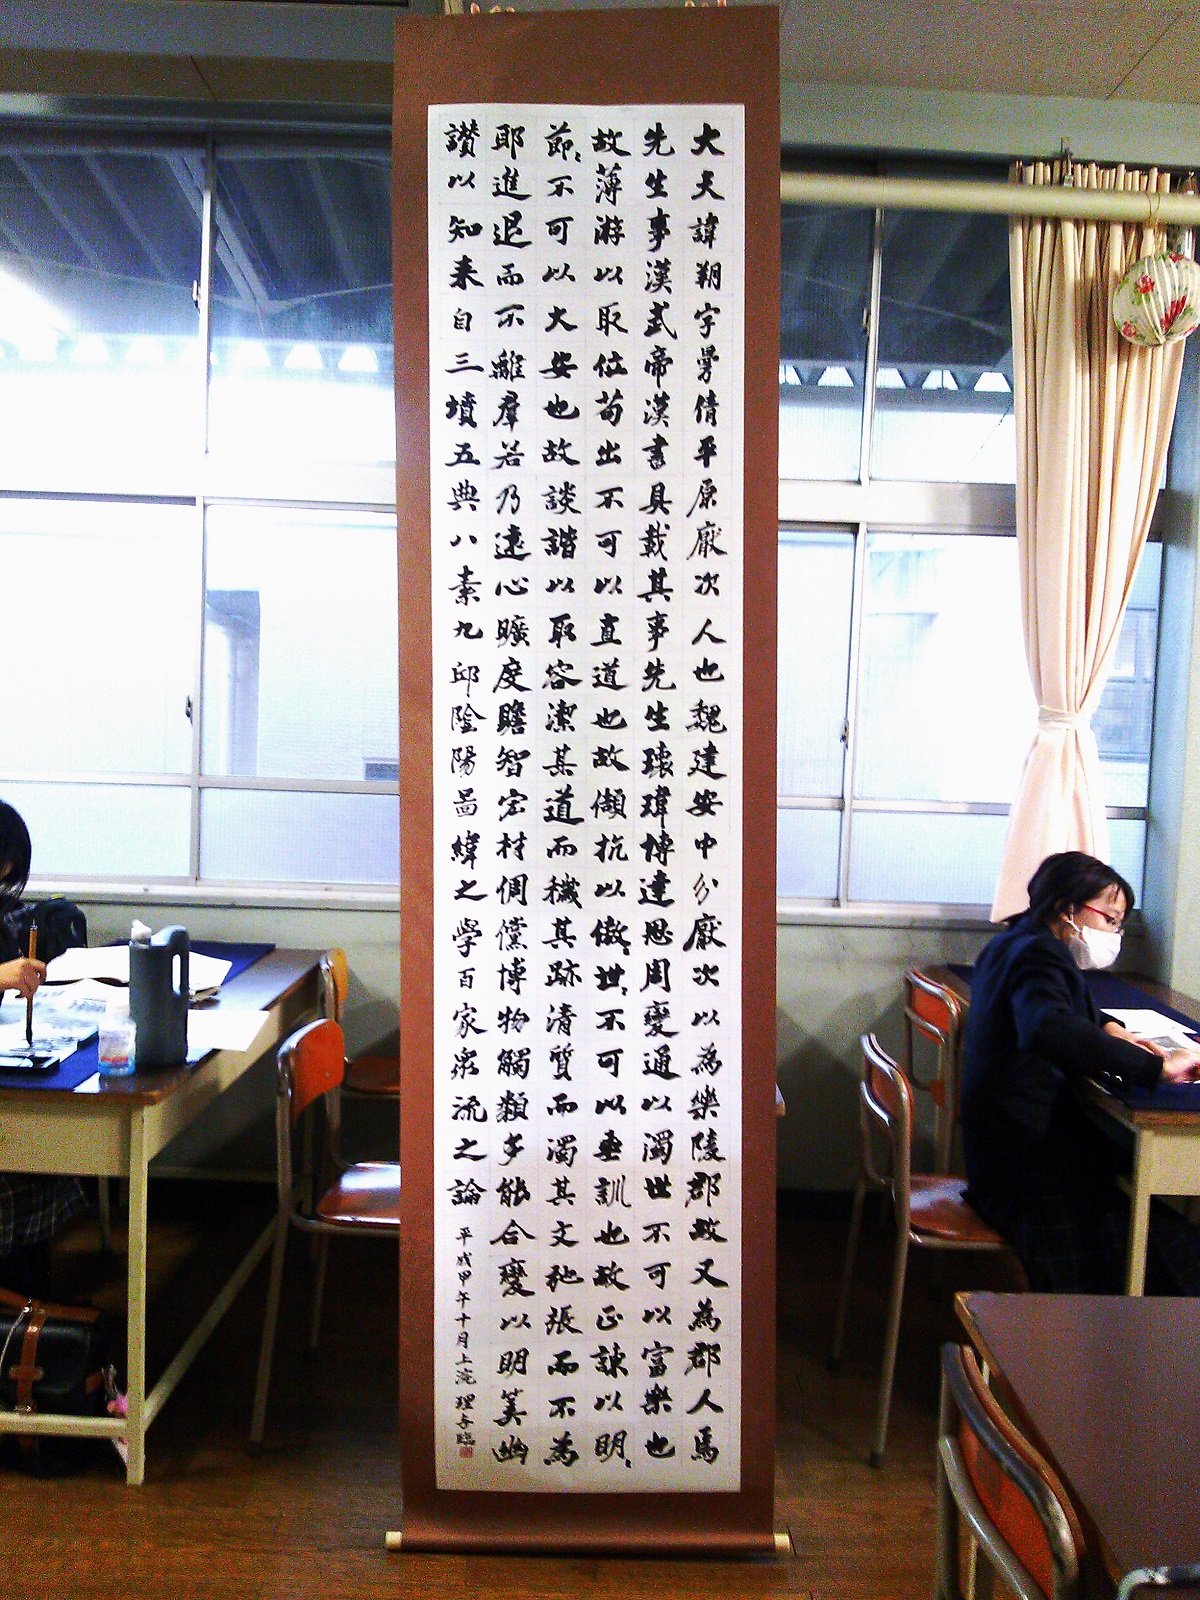 大夫諱朔字曼倩平原厭次人也魏建安中分厭次以為樂陵郡故又為郡人焉
先生事漢武帝漢書具載其事先生瓌瑋博達思周變通以濁世不可以富樂也
故薄游以取位苟出不可以直道也故頡抗以傲世傲世不可以垂訓也故正諫以明節
明節不可以久安也故談諧以取容潔其道而穢其跡清質而濁其文弛張而不為
耶進退而不離羣若乃遠心曠度贍智宏材倜儻博物觸類多能合變以明筭幽
讃以知来自三墳五典八素九邱陰陽啚緯之學百家衆流之論
平成甲午十月上浣 理 臨